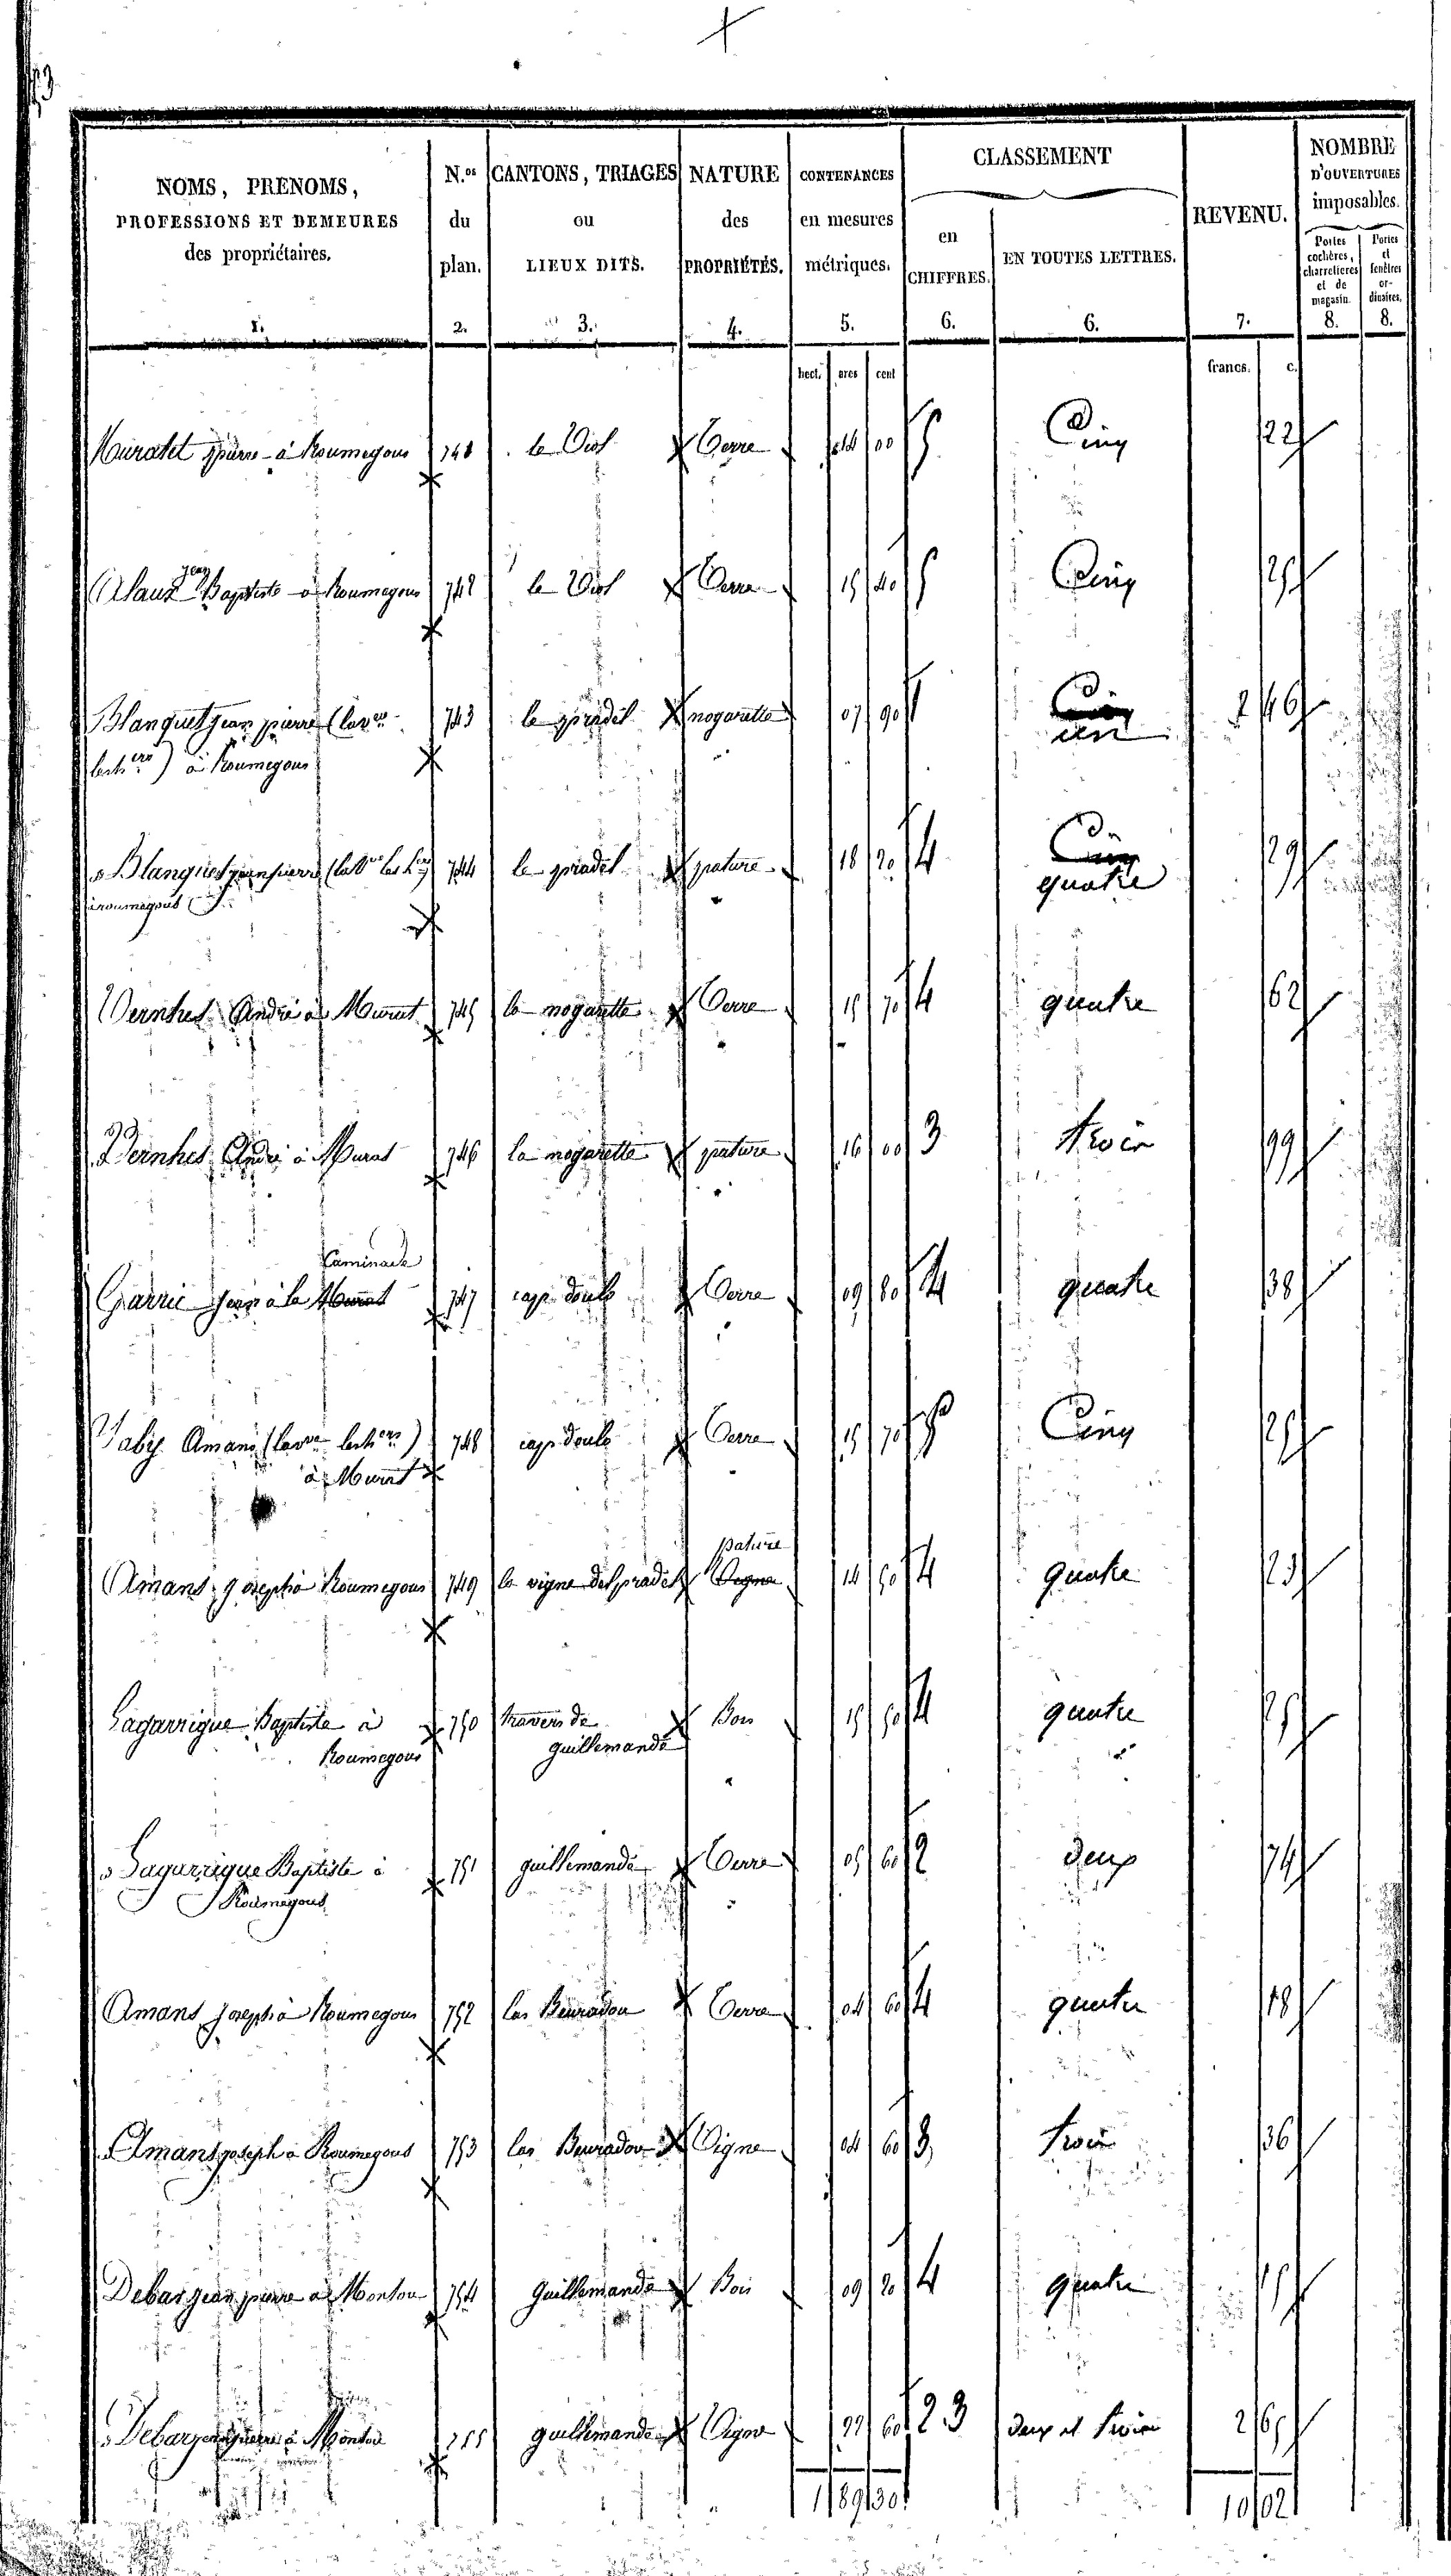 NOMS, PRENOMS,
PROFESSIONS ET DEMEURES
des propriétaires.
1.
N.os
du
plan.
2.
CANTONS, TRIAGES
ou
LIEUX DITS.
3.
NATURE
des
PROPRIÉTÉS.
4.
CONTENANCES
en mesures
métriques.
5.
CLASSEMENT
en
CHIFFRES.
6.
EN TOUTES LETTRES.
6.
REVENU.
7.
NOMBRE
D'OUVERTURES
imposables.
Portes cochères, charretières et de magasin.
8.
Portes et fenêtres ordinaires.
8.
hect. ares cent francs. c.
Muratet pierre à Roumegous 741 le Viol Terre 14 00 5 Cinq 22
Alaux Jean Baptiste à Roumegous 742 le Viol Terre 15 40 5 Cinq 25
Blanquet jean pierre (la ve 743 le pradel nogarette 07 90 1 Cinq un 2 46
les hers) à Roumegous
Blanquet jean pierre (la ve les hers) 744 le pradel pature 18 20 4 Cinq quatre 29
à roumegous
Vernhes André à Murat 745 la nogarette Terre 15 70 4 quatre 62
Vernhes André à Murat 746 la nogarette pature 16 00 3 trois 99
Caminade
Garric Jean à la Murat 747 cap doulo Terre 09 80 4 quatre 38
Amans (la ve les hers) 748 cap doulo Terre 15 70 5 Cinq 25
à Murat
pature
Amans Joseph à Roumegous 749 la vigne del pradel Vigne 14 50 4 quatre 23
Lagarrigue Baptiste à 750 travers de Bois 15 50 4 quatre 25
Roumegous guillemande
Lagarrigue Baptiste à 751 guillemande Terre 05 60 2 deux 74
Roumegous
Amans Joseph à Roumegous 752 las Terre 04 60 4 quatre 18
Amans joseph à Roumegous 753 las Vigne 04 60 3 trois 36
Debar jean pierre à Montou 754 Guillemande Bois 09 20 4 quatre 15
Debar jean pierre à Montou 755 guillemande Vigne 22 60 2 3 deux et trois 2 65
1 89 30 10 02